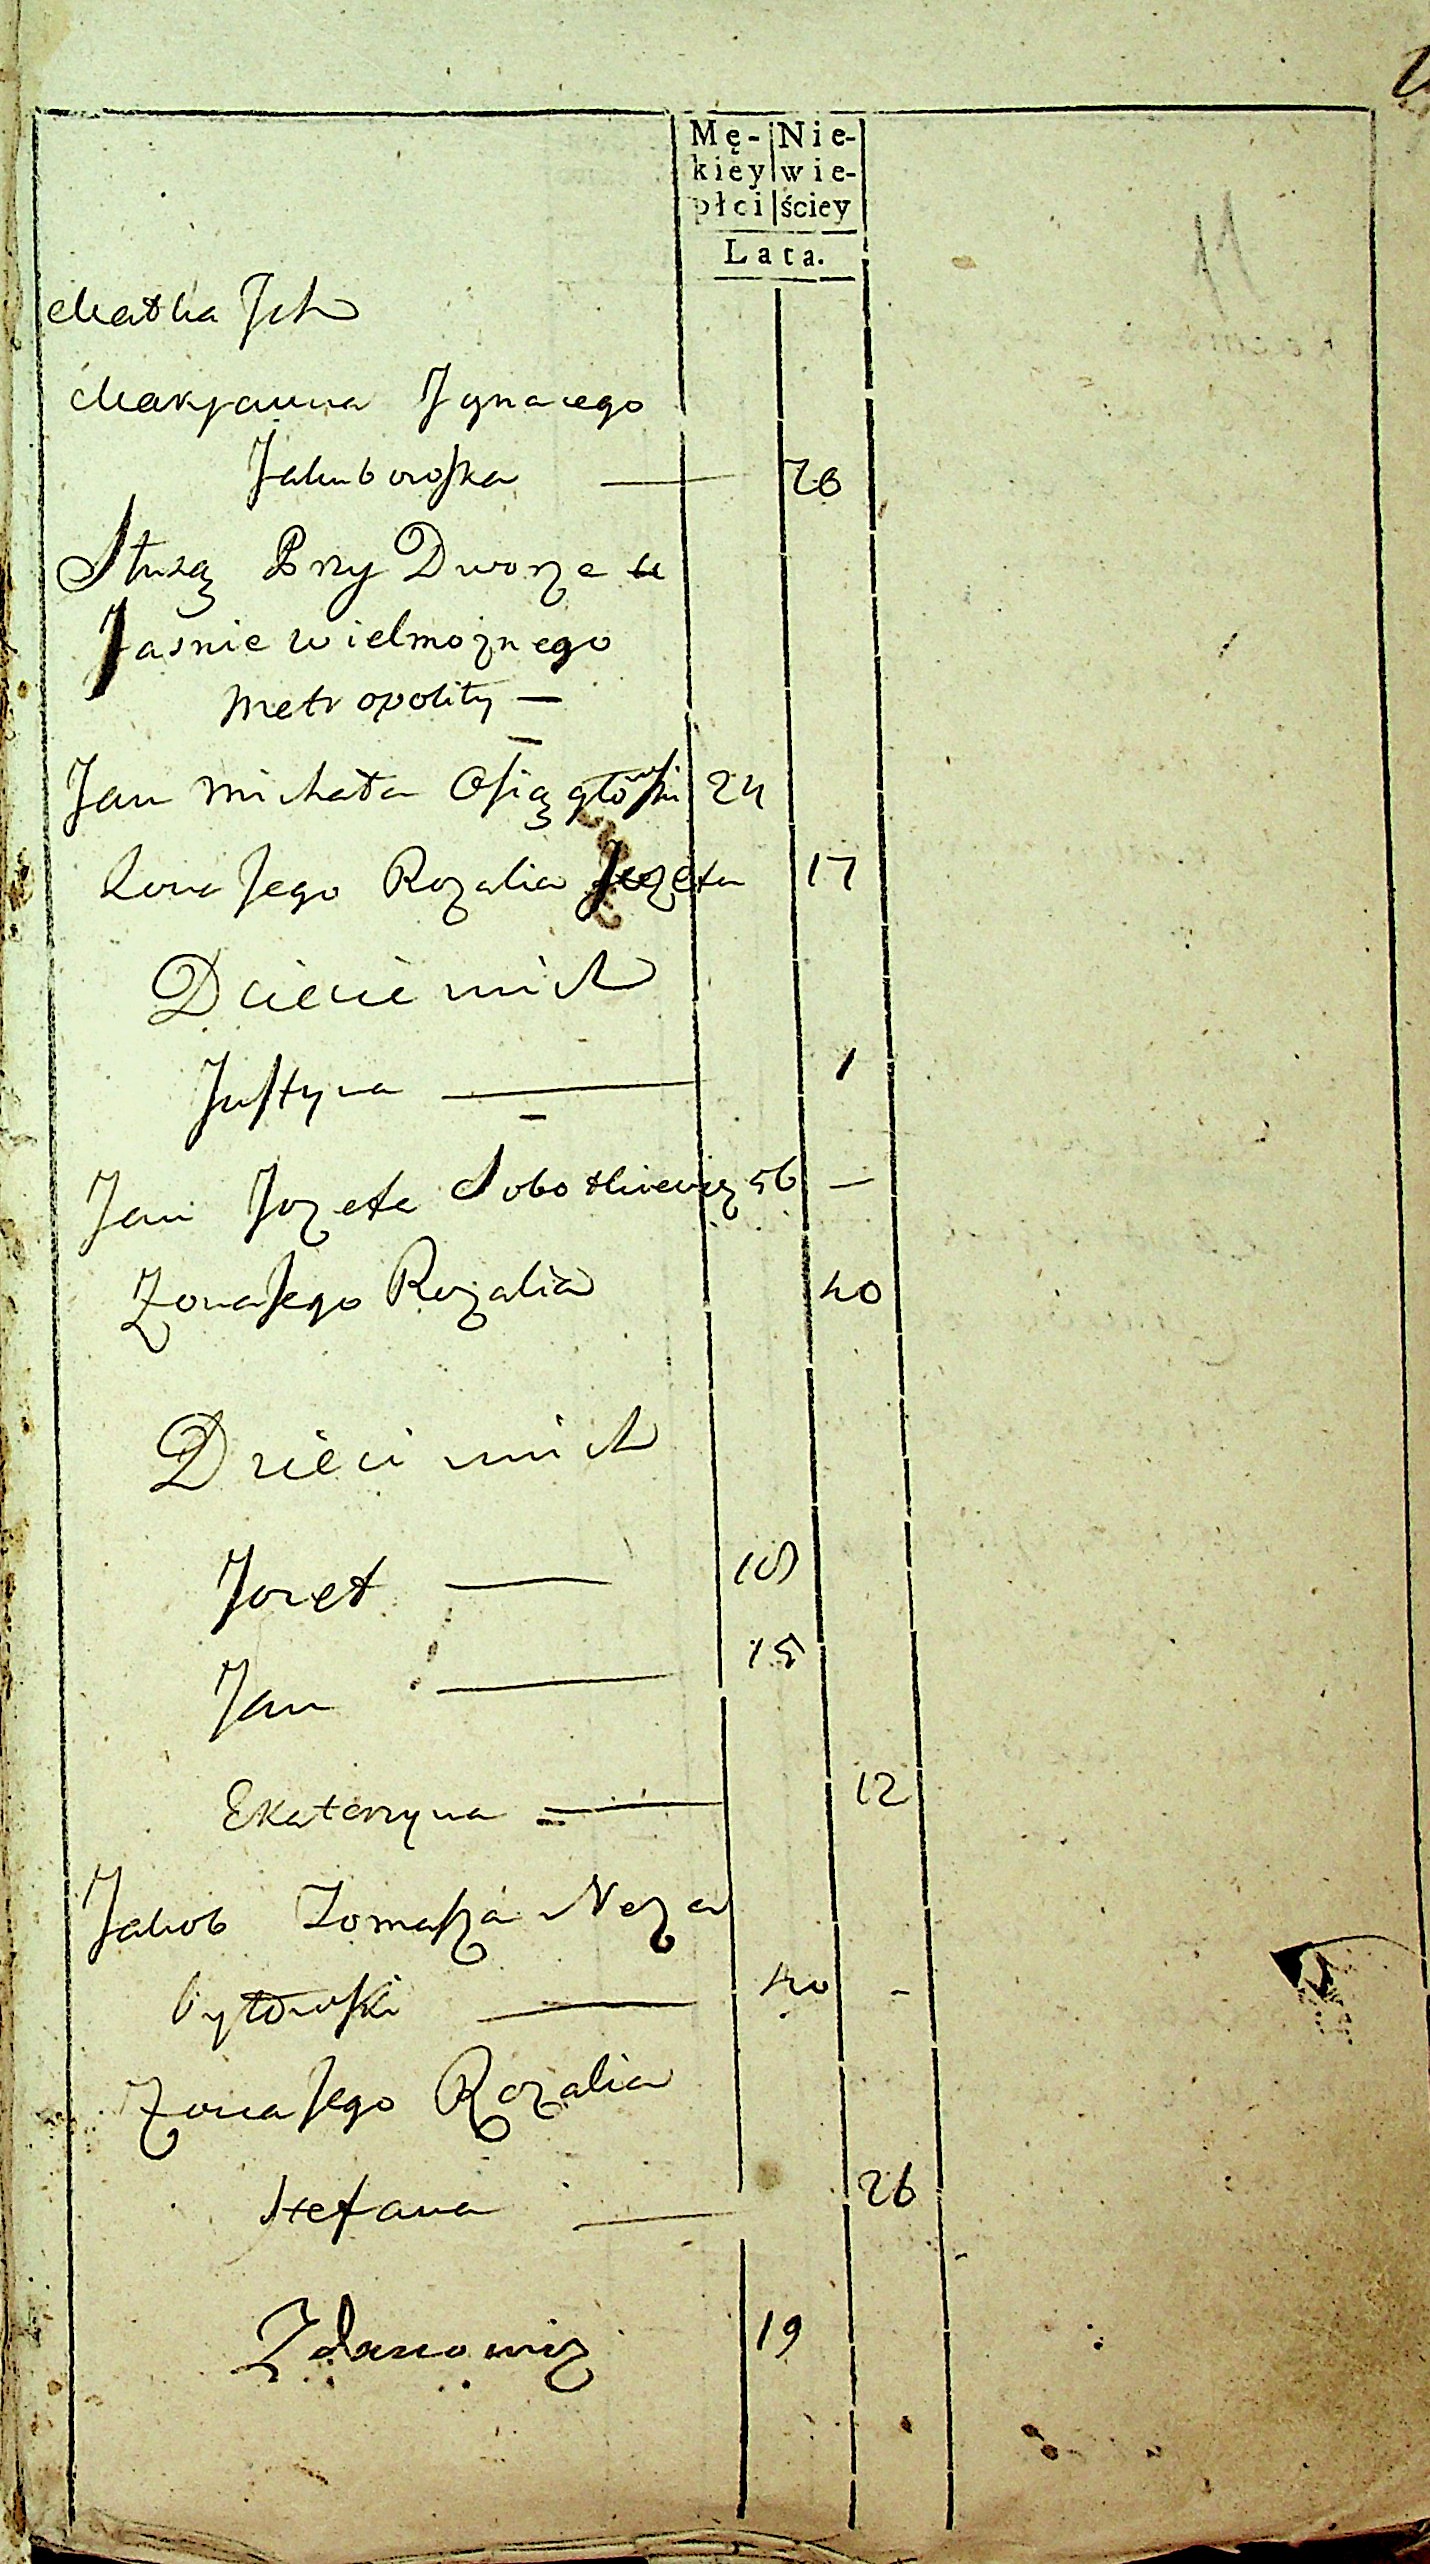 Mę- Nie-
kiey wie-
płci ściey
Lata.
Matka Ich
Maryanna Jgnacego
Jakubowska — 26
Służą Przy Dworze u
Jasnie wielmożnego
Metropolity —
Jan Michała Osięgłowski 24
Zona Jego Rozalia Jozefa 17
Dziecie mich
Justyna — 1
Jan Jozefa Sobotkiewicz 56 —
Zona Jego Rozalia 40
Dzieci mich
Jozef — 18
Jan — 15
Ekaterzyna — 12
Jakob Tomasza Neza
bytowski — 40 -
Zona Jego Rozalia
Stefana — 26
Zdanowicz 19